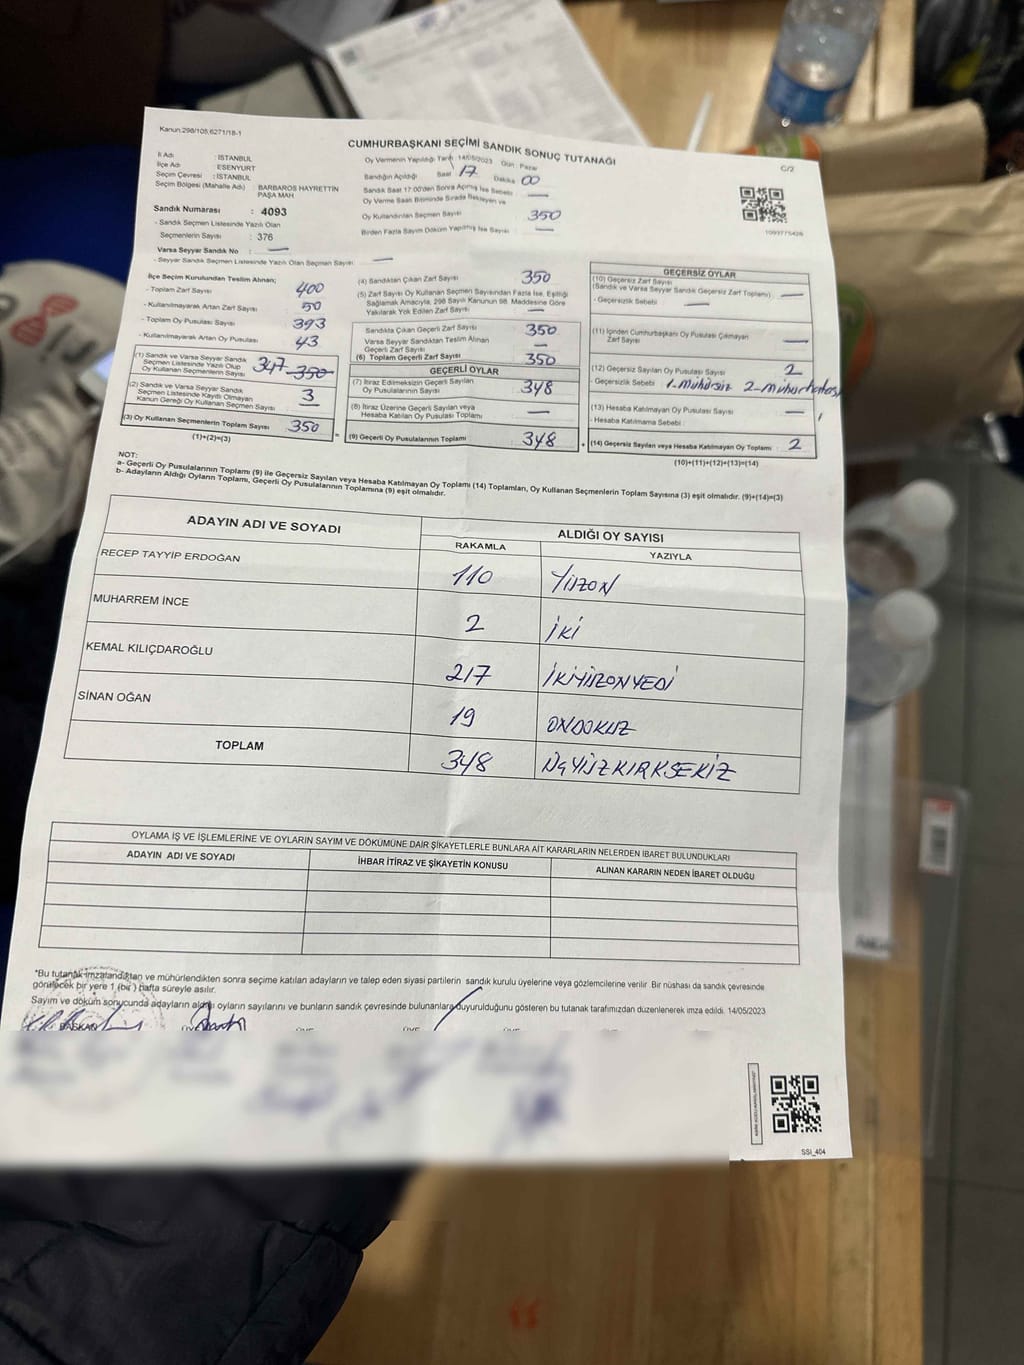 Kanun.298/105;6271/18-1
CUMHURBAŞKANI SEÇİMİ SANDIK SONUÇ TUTANAĞI
C/2
İl Adı : İSTANBUL
İlçe Adı : ESENYURT
Seçim Çevresi : İSTANBUL
Seçim Bölgesi (Mahalle Adı) : BARBAROS HAYRETTİN PAŞA MAH.
Sandık Numarası : 4093
- Sandık Seçmen Listesinde Yazılı Olan
Seçmenlerin Sayısı : 376
Varsa Seyyar Sandık No : —
- Seyyar Sandık Seçmen Listesinde Yazılı Olan Seçmen Sayısı : —
Oy Vermenin Yapıldığı Tarih 14/05/2023 Gün Pazar
Sandığın Açıldığı Saat 17 Dakika 00
Sandık Saat 17:00'den Sonra Açılmış İse Sebebi : —
Oy Verme Saati Bitiminde Sırada Bekleyen ve
Oy Kullandırılan Seçmen Sayısı 350
Birden Fazla Sayım Döküm Yapılmış İse Sayısı : —
1093775426
İlçe Seçim Kurulundan Teslim Alınan;
- Toplam Zarf Sayısı 400
- Kullanılmayarak Artan Zarf Sayısı 50
- Toplam Oy Pusulası Sayısı 393
- Kullanılmayarak Artan Oy Pusulası 43
(1) Sandık ve Varsa Seyyar Sandık
Seçmen Listesinde Yazılı Olup
Oy Kullanan Seçmenlerin Sayısı 347 350
(2) Sandık ve Varsa Seyyar Sandık
Seçmen Listesinde Kayıtlı Olmayan
Kanun Gereği Oy Kullanan Seçmen Sayısı 3
(3) Oy Kullanan Seçmenlerin Toplam Sayısı 350
(1)+(2)=(3)
(4) Sandıktan Çıkan Zarf Sayısı 350
(5) Zarf Sayısı Oy Kullanan Seçmen Sayısından Fazla İse, Eşitliği
Sağlamak Amacıyla, 298 Sayılı Kanunun 98. Maddesine Göre
Yakılarak Yok Edilen Zarf Sayısı —
Sandıkta Çıkan Geçerli Zarf Sayısı 350
Varsa Seyyar Sandıktan Teslim Alınan
Geçerli Zarf Sayısı —
(6) Toplam Geçerli Zarf Sayısı 350
GEÇERLİ OYLAR
(7) İtiraz Edilmeksizin Geçerli Sayılan
Oy Pusulalarının Sayısı 348
(8) İtiraz Üzerine Geçerli Sayılan veya
Hesaba Katılan Oy Pusulası Toplamı —
(9) Geçerli Oy Pusulalarının Toplamı 348
GEÇERSİZ OYLAR
(10) Geçersiz Zarf Sayısı
(Sandık ve Varsa Seyyar Sandık Geçersiz Zarf Toplamı) : —
- Geçersizlik Sebebi : —
(11) İçinden Cumhurbaşkanı Oy Pusulası Çıkmayan
Zarf Sayısı —
(12) Geçersiz Sayılan Oy Pusulası Sayısı 2
- Geçersizlik Sebebi 1-Mühürsüz 2-Mühür hatası
(13) Hesaba Katılmayan Oy Pusulası Sayısı —
- Hesaba Katılmama Sebebi :
(14) Geçersiz Sayılan veya Hesaba Katılmayan Oy Toplamı : 2
(10)+(11)+(12)+(13)=(14)
NOT:
a- Geçerli Oy Pusulalarının Toplamı (9) ile Geçersiz Sayılan veya Hesaba Katılmayan Oy Toplamı (14) Toplamları, Oy Kullanan Seçmenlerin Toplam Sayısına (3) eşit olmalıdır. (9)+(14)=(3)
b- Adayların Aldığı Oyların Toplamı, Geçerli Oy Pusulalarının Toplamına (9) eşit olmalıdır.
ADAYIN ADI VE SOYADI
ALDIĞI OY SAYISI
RAKAMLA YAZIYLA
RECEP TAYYİP ERDOĞAN 110 YÜZON
MUHARREM İNCE 2 İKİ
KEMAL KILIÇDAROĞLU 217 İKİYÜZONYEDİ
SİNAN OĞAN 19 ONDOKUZ
TOPLAM 348 ÜÇYÜZKIRKSEKİZ
OYLAMA İŞ VE İŞLEMLERİNE VE OYLARIN SAYIM VE DÖKÜMÜNE DAİR ŞİKAYETLERLE BUNLARA AİT KARARLARIN NELERDEN İBARET BULUNDUKLARI
ADAYIN ADI VE SOYADI İHBAR İTİRAZ VE ŞİKAYETİN KONUSU ALINAN KARARIN NEDEN İBARET OLDUĞU
*Bu tutanak imzalandıktan ve mühürlendikten sonra seçime katılan adayların ve talep eden siyasi partilerin sandık kurulu üyelerine veya gözlemcilerine verilir. Bir nüshası da sandık çevresinde
görülecek bir yere 1 (bir) hafta süreyle asılır.
Sayım ve döküm sonucunda adayların aldığı oyların sayılarını ve bunların sandık çevresinde bulunanlara duyurulduğunu gösteren bu tutanak tarafımızdan düzenlenerek imza edildi. 14/05/2023
BAŞKAN
SSI_404